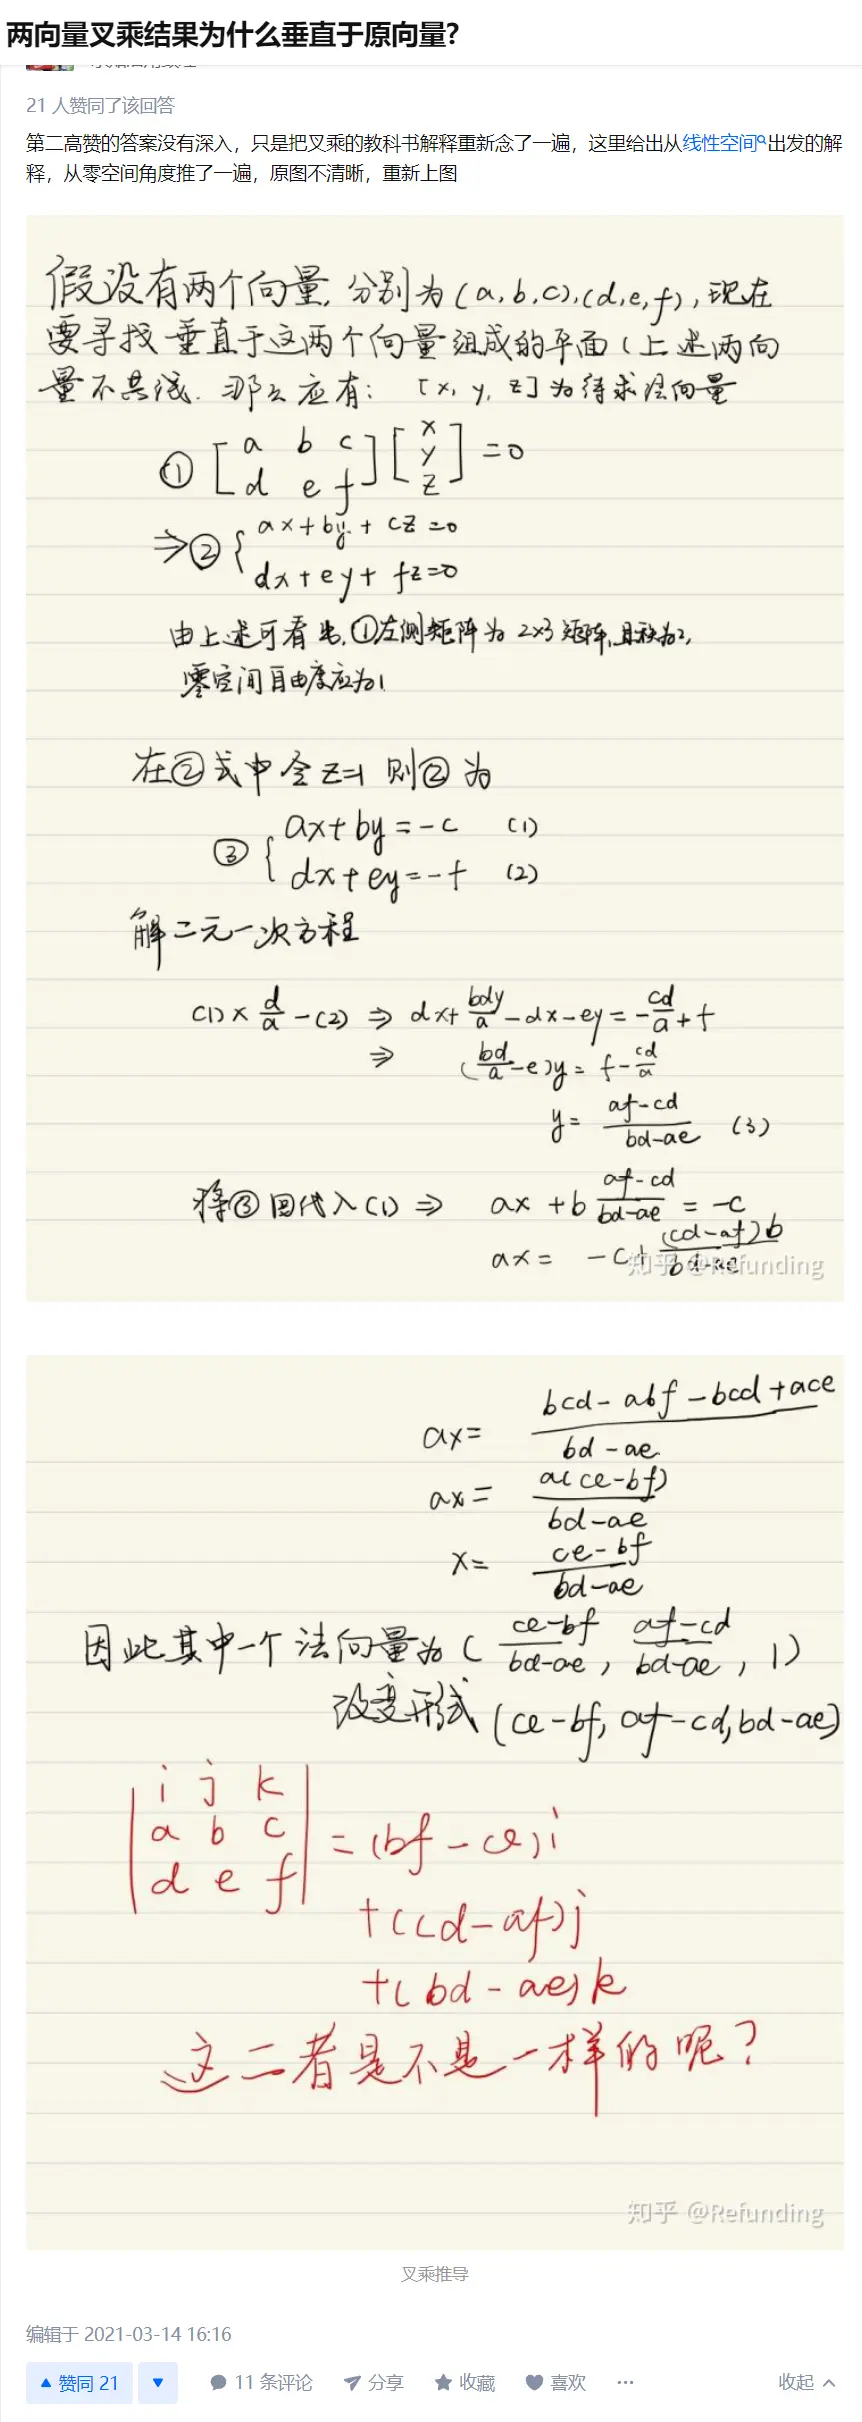 两向量叉乘结果为什么垂直于原向量?
21 人赞同了该回答
第二高赞的答案没有深入，只是把叉乘的教科书解释重新念了一遍，这里给出从线性空间出发的解
释，从零空间角度推了一遍，原图不清晰，重新上图
假设有两个向量，分别为(a,b,c),(d,e,f)，现在
要寻找垂直于这两个向量组成的平面(上述两向
量不共线. 那么应有: [x, y, z]为待求法向量
① [a b c; d e f] [x; y; z] = 0
⇒② { ax+by+cz=0
dx+ey+fz=0
由上述可看出,①左侧矩阵为 2×3 矩阵,且秩为2,
零空间自由度应为1
在②式中令z=1 则②为
③ { ax+by=-c (1)
dx+ey=-f (2)
解二元一次方程
(1)× d/a -(2) ⇒ dx+ bdy/a -dx-ey= -cd/a +f
⇒ (bd/a -e)y= f- cd/a
y= (af-cd)/(bd-ae) (3)
将③回代入(1) ⇒ ax +b (af-cd)/(bd-ae) = -c
ax= -c+ (cd-af)b/(bd-ae)
知乎 @Refunding
ax= (bcd-abf-bcd+ace)/(bd-ae)
ax= a(ce-bf)/(bd-ae)
x= (ce-bf)/(bd-ae)
因此其中一个法向量为( (ce-bf)/(bd-ae), (af-cd)/(bd-ae), 1)
改变形式 (ce-bf, af-cd, bd-ae)
|i j k; a b c; d e f| =(bf-ce)i
+(cd-af)j
+(bd-ae)k
这二者是不是一样的呢?
知乎 @Refunding
叉乘推导
编辑于 2021-03-14 16:16
赞同 21 11 条评论 分享 收藏 喜欢 ··· 收起